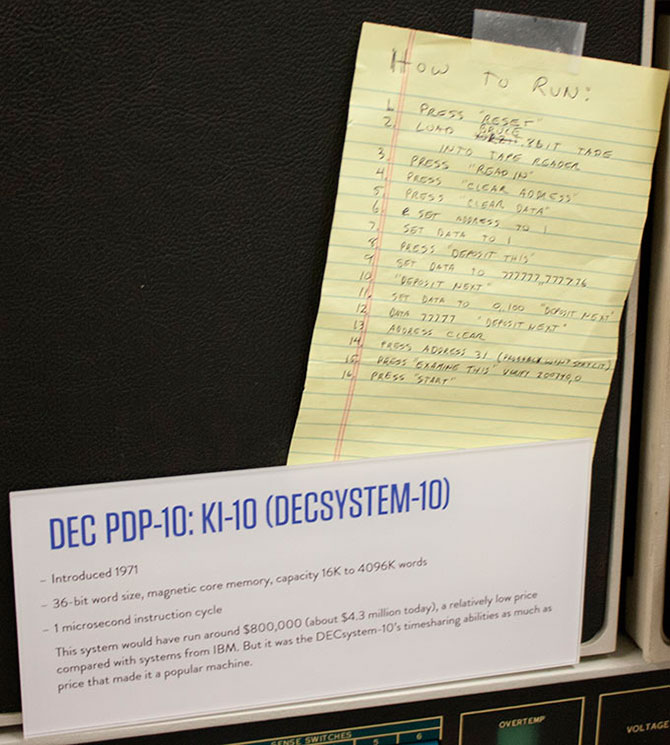 HOW TO RUN:
1. PRESS "RESET"
2. LOAD BRUCE 8 BIT TAPE
INTO TAPE READER
3. PRESS "READ IN"
4. PRESS "CLEAR ADDRESS"
5. PRESS "CLEAR DATA"
6. SET ADDRESS TO 1
7. SET DATA TO 1
8. PRESS "DEPOSIT THIS"
9. SET DATA TO 777777,,777776
10. "DEPOSIT NEXT"
11. SET DATA TO 0,,100 "DEPOSIT NEXT"
12. DATA 77777 "DEPOSIT NEXT"
13. ADDRESS CLEAR
14. PRESS ADDRESS 31
15. PRESS "EXAMINE THIS" VERIFY 200740,0
16. PRESS "START"
DEC PDP-10: KI-10 (DECSYSTEM-10)
– Introduced 1971
– 36-bit word size, magnetic core memory, capacity 16K to 4096K words
– 1 microsecond instruction cycle
This system would have run around $800,000 (about $4.3 million today), a relatively low price
compared with systems from IBM. But it was the DECsystem-10's timesharing abilities as much as
price that made it a popular machine.
SENSE SWITCHES
5 6
OVERTEMP
VOLTAGE